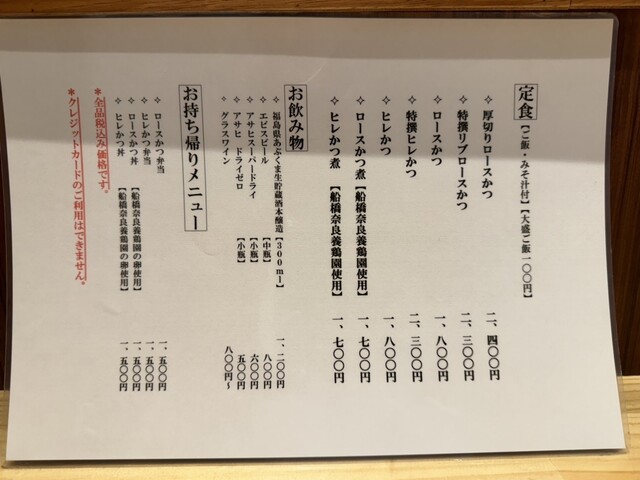 定食【ご飯・みそ汁付】【大盛ご飯一〇〇円】
✧ 厚切りロースかつ 二、四〇〇円
✧ 特撰リブロースかつ 二、三〇〇円
✧ ロースかつ 一、八〇〇円
✧ 特撰ヒレかつ 二、三〇〇円
✧ ヒレかつ 一、八〇〇円
✧ ロースかつ煮【船橋奈良養鶏園使用】 一、七〇〇円
✧ ヒレかつ煮【船橋奈良養鶏園使用】 一、七〇〇円
お飲み物
✧ 福島県あぶくま生貯蔵酒本醸造【300ml】 一、二〇〇円
✧ エビスビール【中瓶】 八〇〇円
✧ アサヒスーパードライ【小瓶】 六〇〇円
✧ アサヒ ドライゼロ【小瓶】 五〇〇円
✧ グラスワイン 八〇〇円〜
お持ち帰りメニュー
✧ ロースかつ弁当 一、五〇〇円
✧ ヒレかつ弁当 一、五〇〇円
✧ ロースかつ丼【船橋奈良養鶏園の卵使用】 一、五〇〇円
✧ ヒレかつ丼【船橋奈良養鶏園の卵使用】 一、五〇〇円
*全品税込み価格です。
*クレジットカードのご利用はできません。